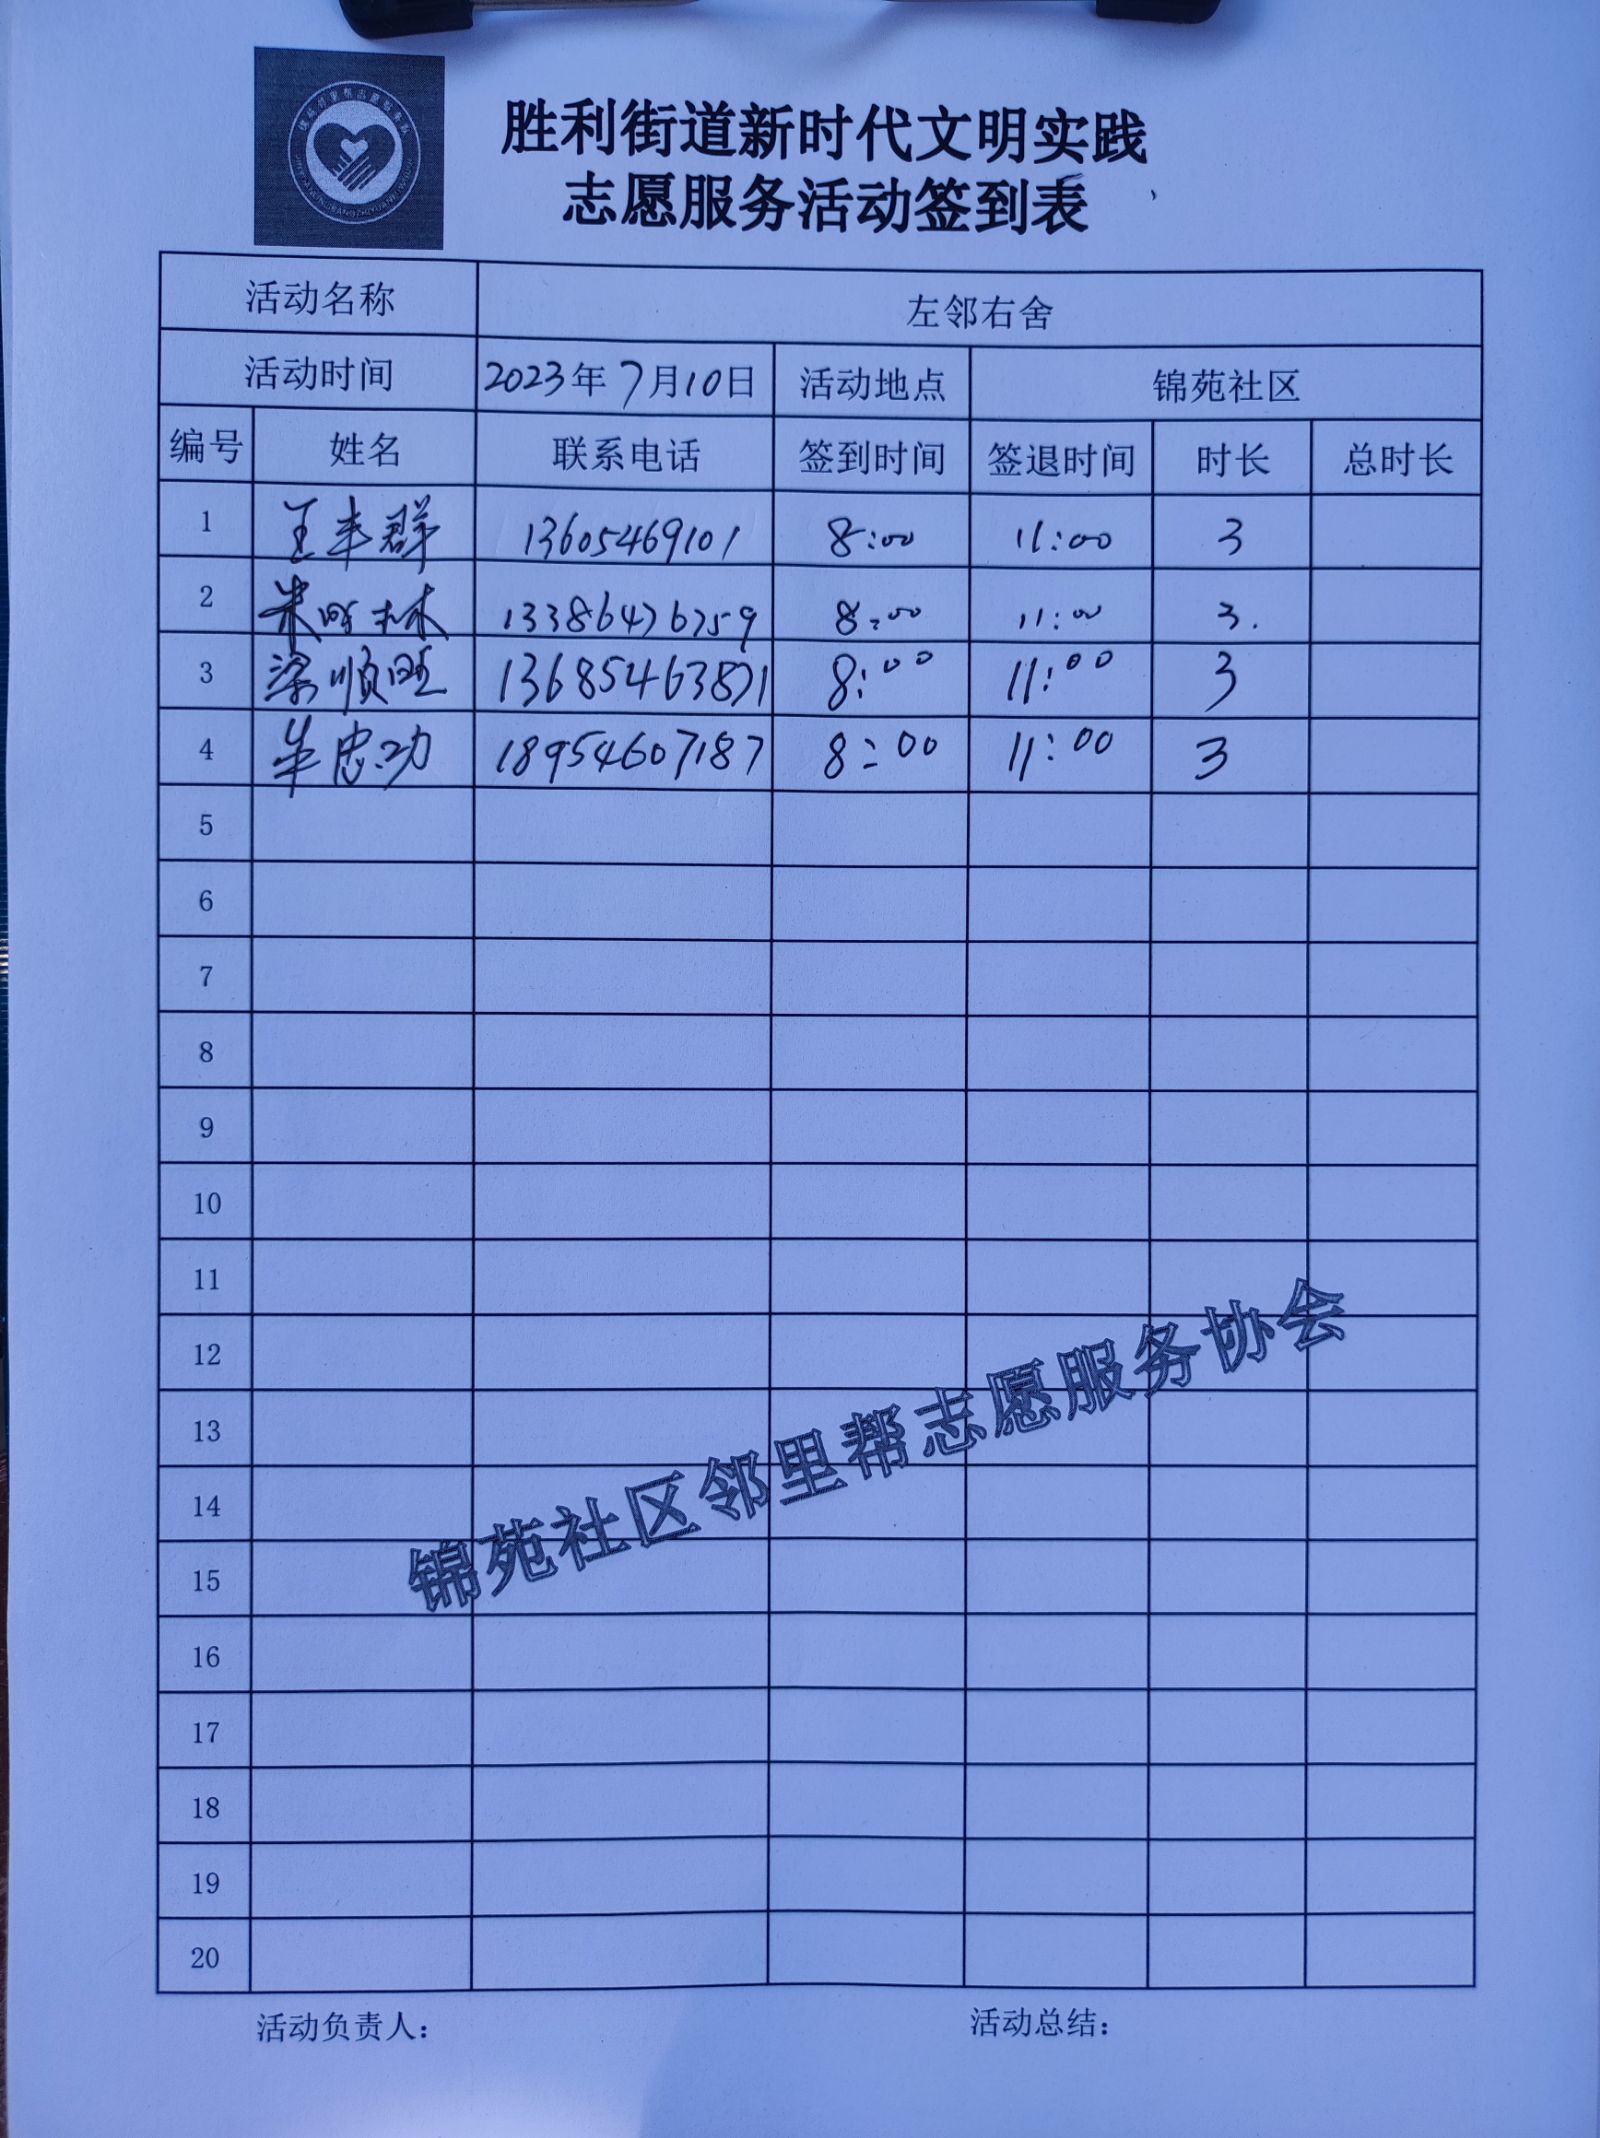 胜利街道新时代文明实践
志愿服务活动签到表
活动名称 左邻右舍
活动时间 2023年7月10日 活动地点 锦苑社区
编号 姓名 联系电话 签到时间 签退时间 时长 总时长
1 王丰群 13605469101 8:00 11:00 3
2 林 13386476759 8:00 11:00 3.
3 梁顺旺 13685463871 8:00 11:00 3
4 牟忠功 18954607187 8:00 11:00 3
5
6
7
8
9
10
11
12
13
14
15
16
17
18
19
20
锦苑社区邻里帮志愿服务协会
活动负责人: 活动总结: